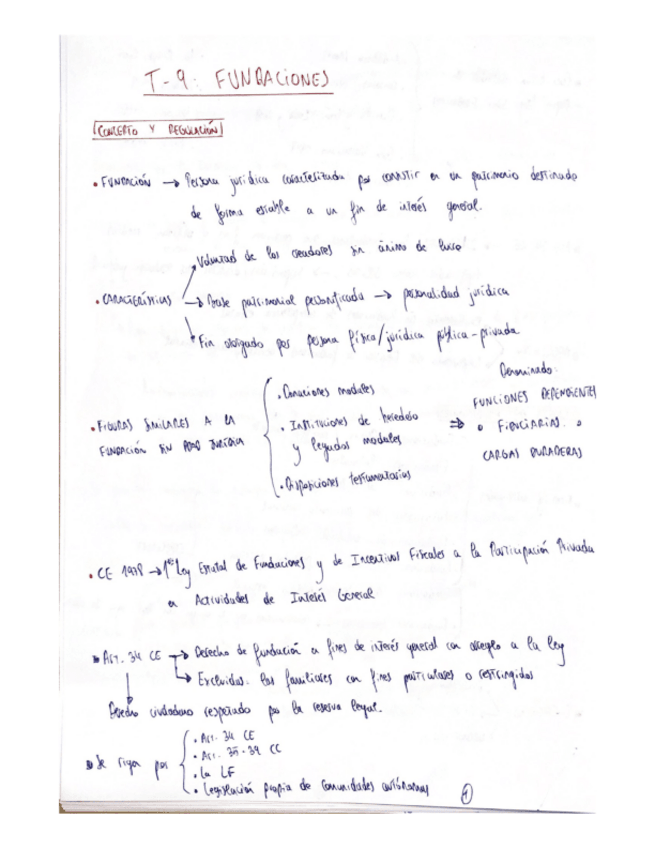 T-9: FUNDACIONES
CONCEPTO Y REGULACIÓN
• FUNDACIÓN → Persona jurídica caracterizada por consistir en un patrimonio destinado
de forma estable a un fin de interés general.
Voluntad de los creadores sin ánimo de lucro
• CARACTERÍSTICAS → Base patrimonial personificada → personalidad jurídica
Fin otorgado por persona física/jurídica pública-privada
• FIGURAS SIMILARES A LA
FUNDACIÓN SIN PDAD JURÍDICA
• Donaciones modales
• Instituciones de heredero
y legados modales
• Disposiciones testamentarias
⇒ Denominado:
FUNCIONES DEPENDIENTES
o FIDUCIARIAS o
CARGAS DURADERAS
• CE 1978 → 1ª Ley Estatal de Fundaciones y de Incentivos Fiscales a la Participación Privada
en Actividades de Interés General
Art. 34 CE → Derecho de fundación a fines de interés general con arreglo a la ley
→ Excluidas: las familiares con fines particulares o restringidos
Derecho ciudadano respetado por la reserva legal.
Se rigen por
• Art. 34 CE
• Art. 35-39 CC
• La LF
• Legislación propia de comunidades autónomas
1